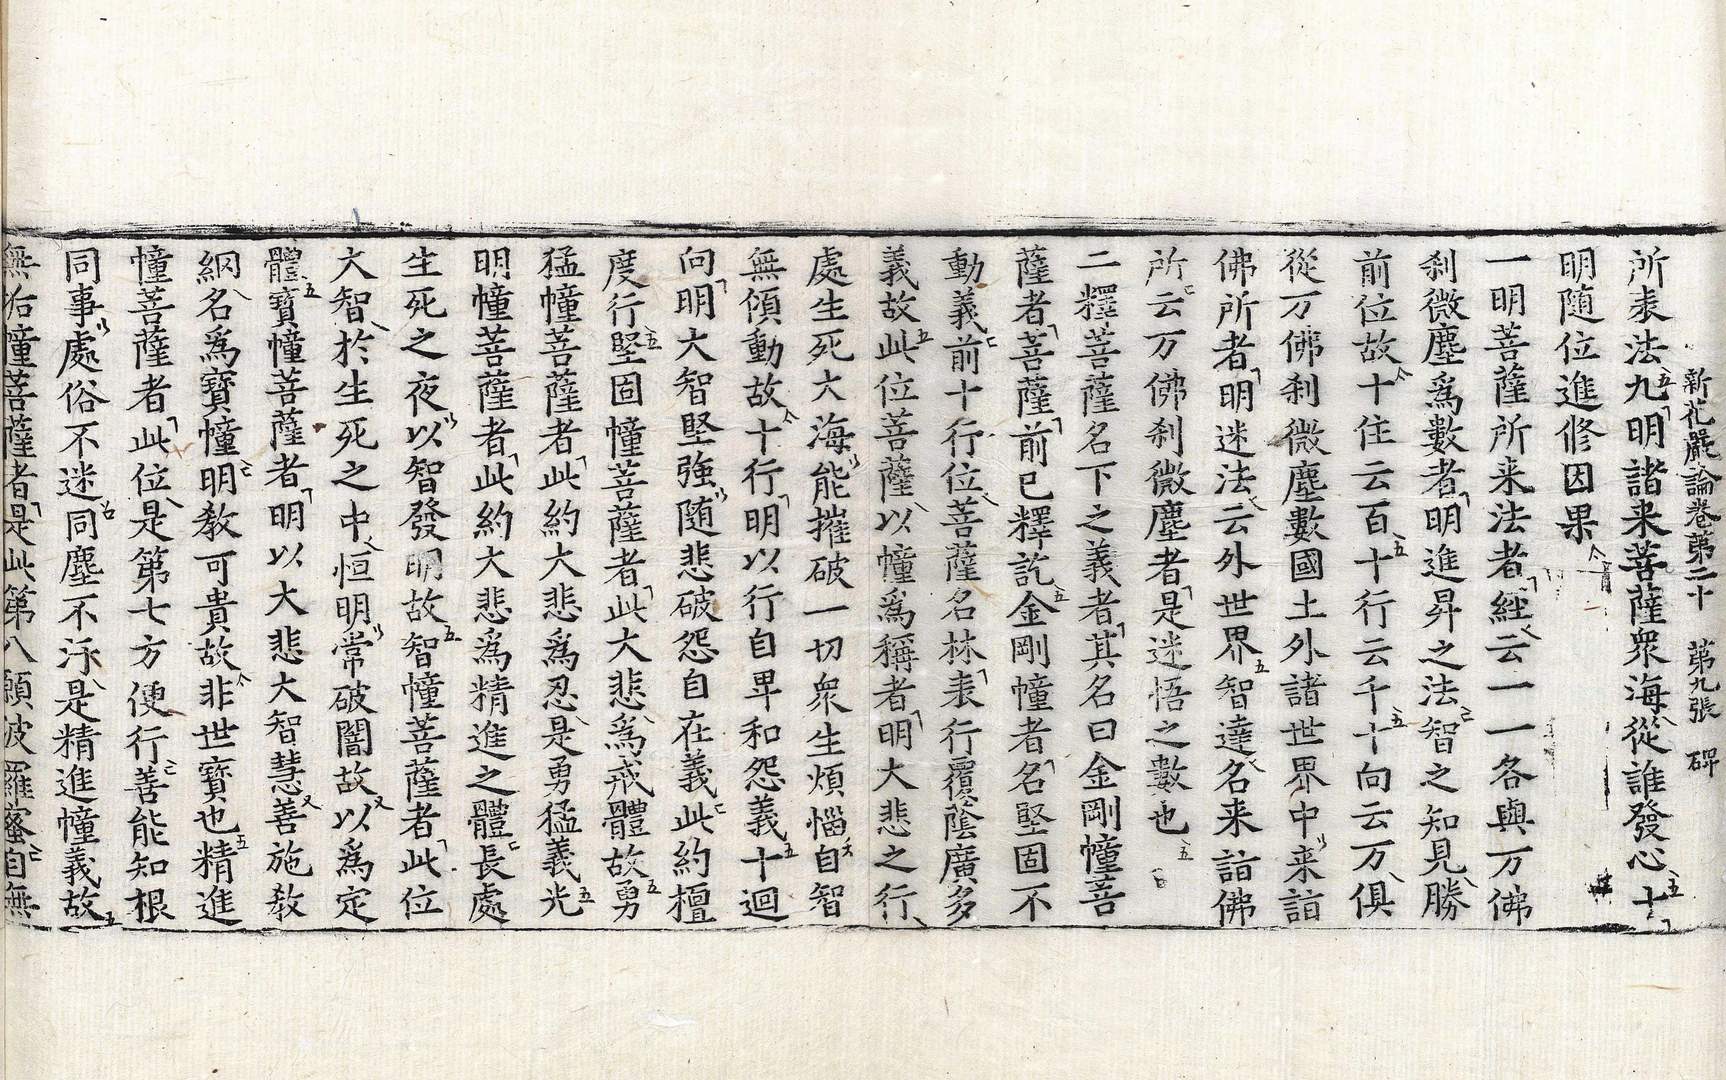 新花嚴論卷第二十　第九張　碑
所表法九明諸来菩薩衆海從誰發心十
明随位進修因果
一明菩薩所来法者經云一一各與万佛
刹微塵爲數者明進昇之法智之知見勝
前位故十住云百十行云千十向云万俱
從万佛刹微塵數國土外諸世界中来詣
佛所者明迷法云外世界智達名来詣佛
所云万佛刹微塵者是迷悟之數也
二釋菩薩名下之義者其名曰金剛幢菩
薩者菩薩前已釋訖金剛幢者名堅固不
動義前十行位菩薩名林表行覆蔭廣多
義故此位菩薩以幢爲稱者明大悲之行
處生死大海能摧破一切衆生煩惱自智
無傾動故十行明以行自卑和怨義十迴
向明大智堅強随悲破怨自在義此約檀
度行堅固幢菩薩者此大悲爲戒體故勇
猛幢菩薩者此約大悲爲忍是勇猛義光
明幢菩薩者此約大悲爲精進之體長處
生死之夜以智發明故智幢菩薩者此位
大智於生死之中恒明常破闇故以爲定
體寶幢菩薩者明以大悲大智慧善施教
網名爲寶幢明教可貴故非世寶也精進
幢菩薩者此位是第七方便行善能知根
同事處俗不迷同塵不汙是精進幢義故
無垢幢菩薩者是此第八願波羅蜜自無